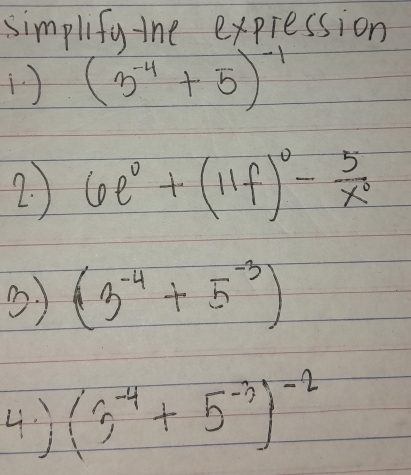 simplify the expression
1.) (3⁻⁴ + 5)⁻¹
2.) 6e⁰ + (11f)⁰ - 5/x⁰
3.) (3⁻⁴ + 5⁻³)
4.) (3⁻⁴ + 5⁻³)⁻²